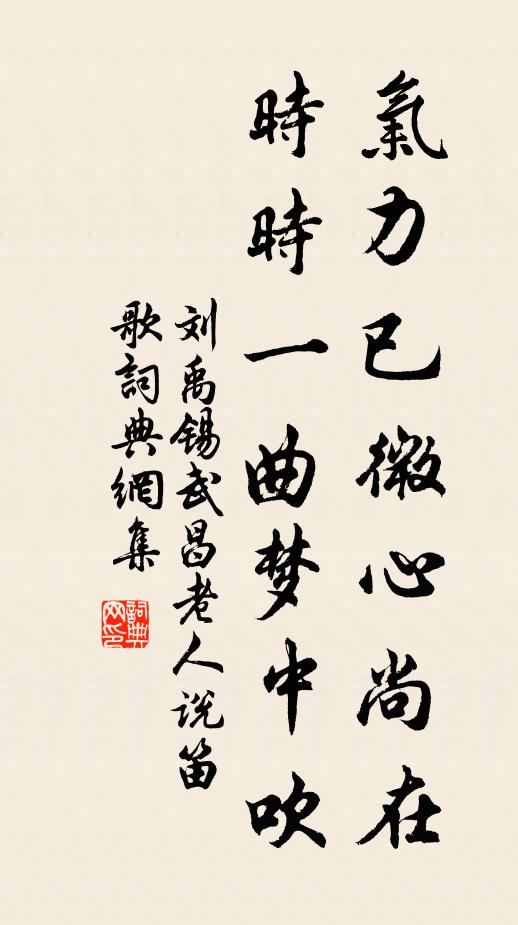 氣力已微心尚在
時時一曲梦中吹
刘禹锡武昌老人说笛
歌詞典網集
詞典网印